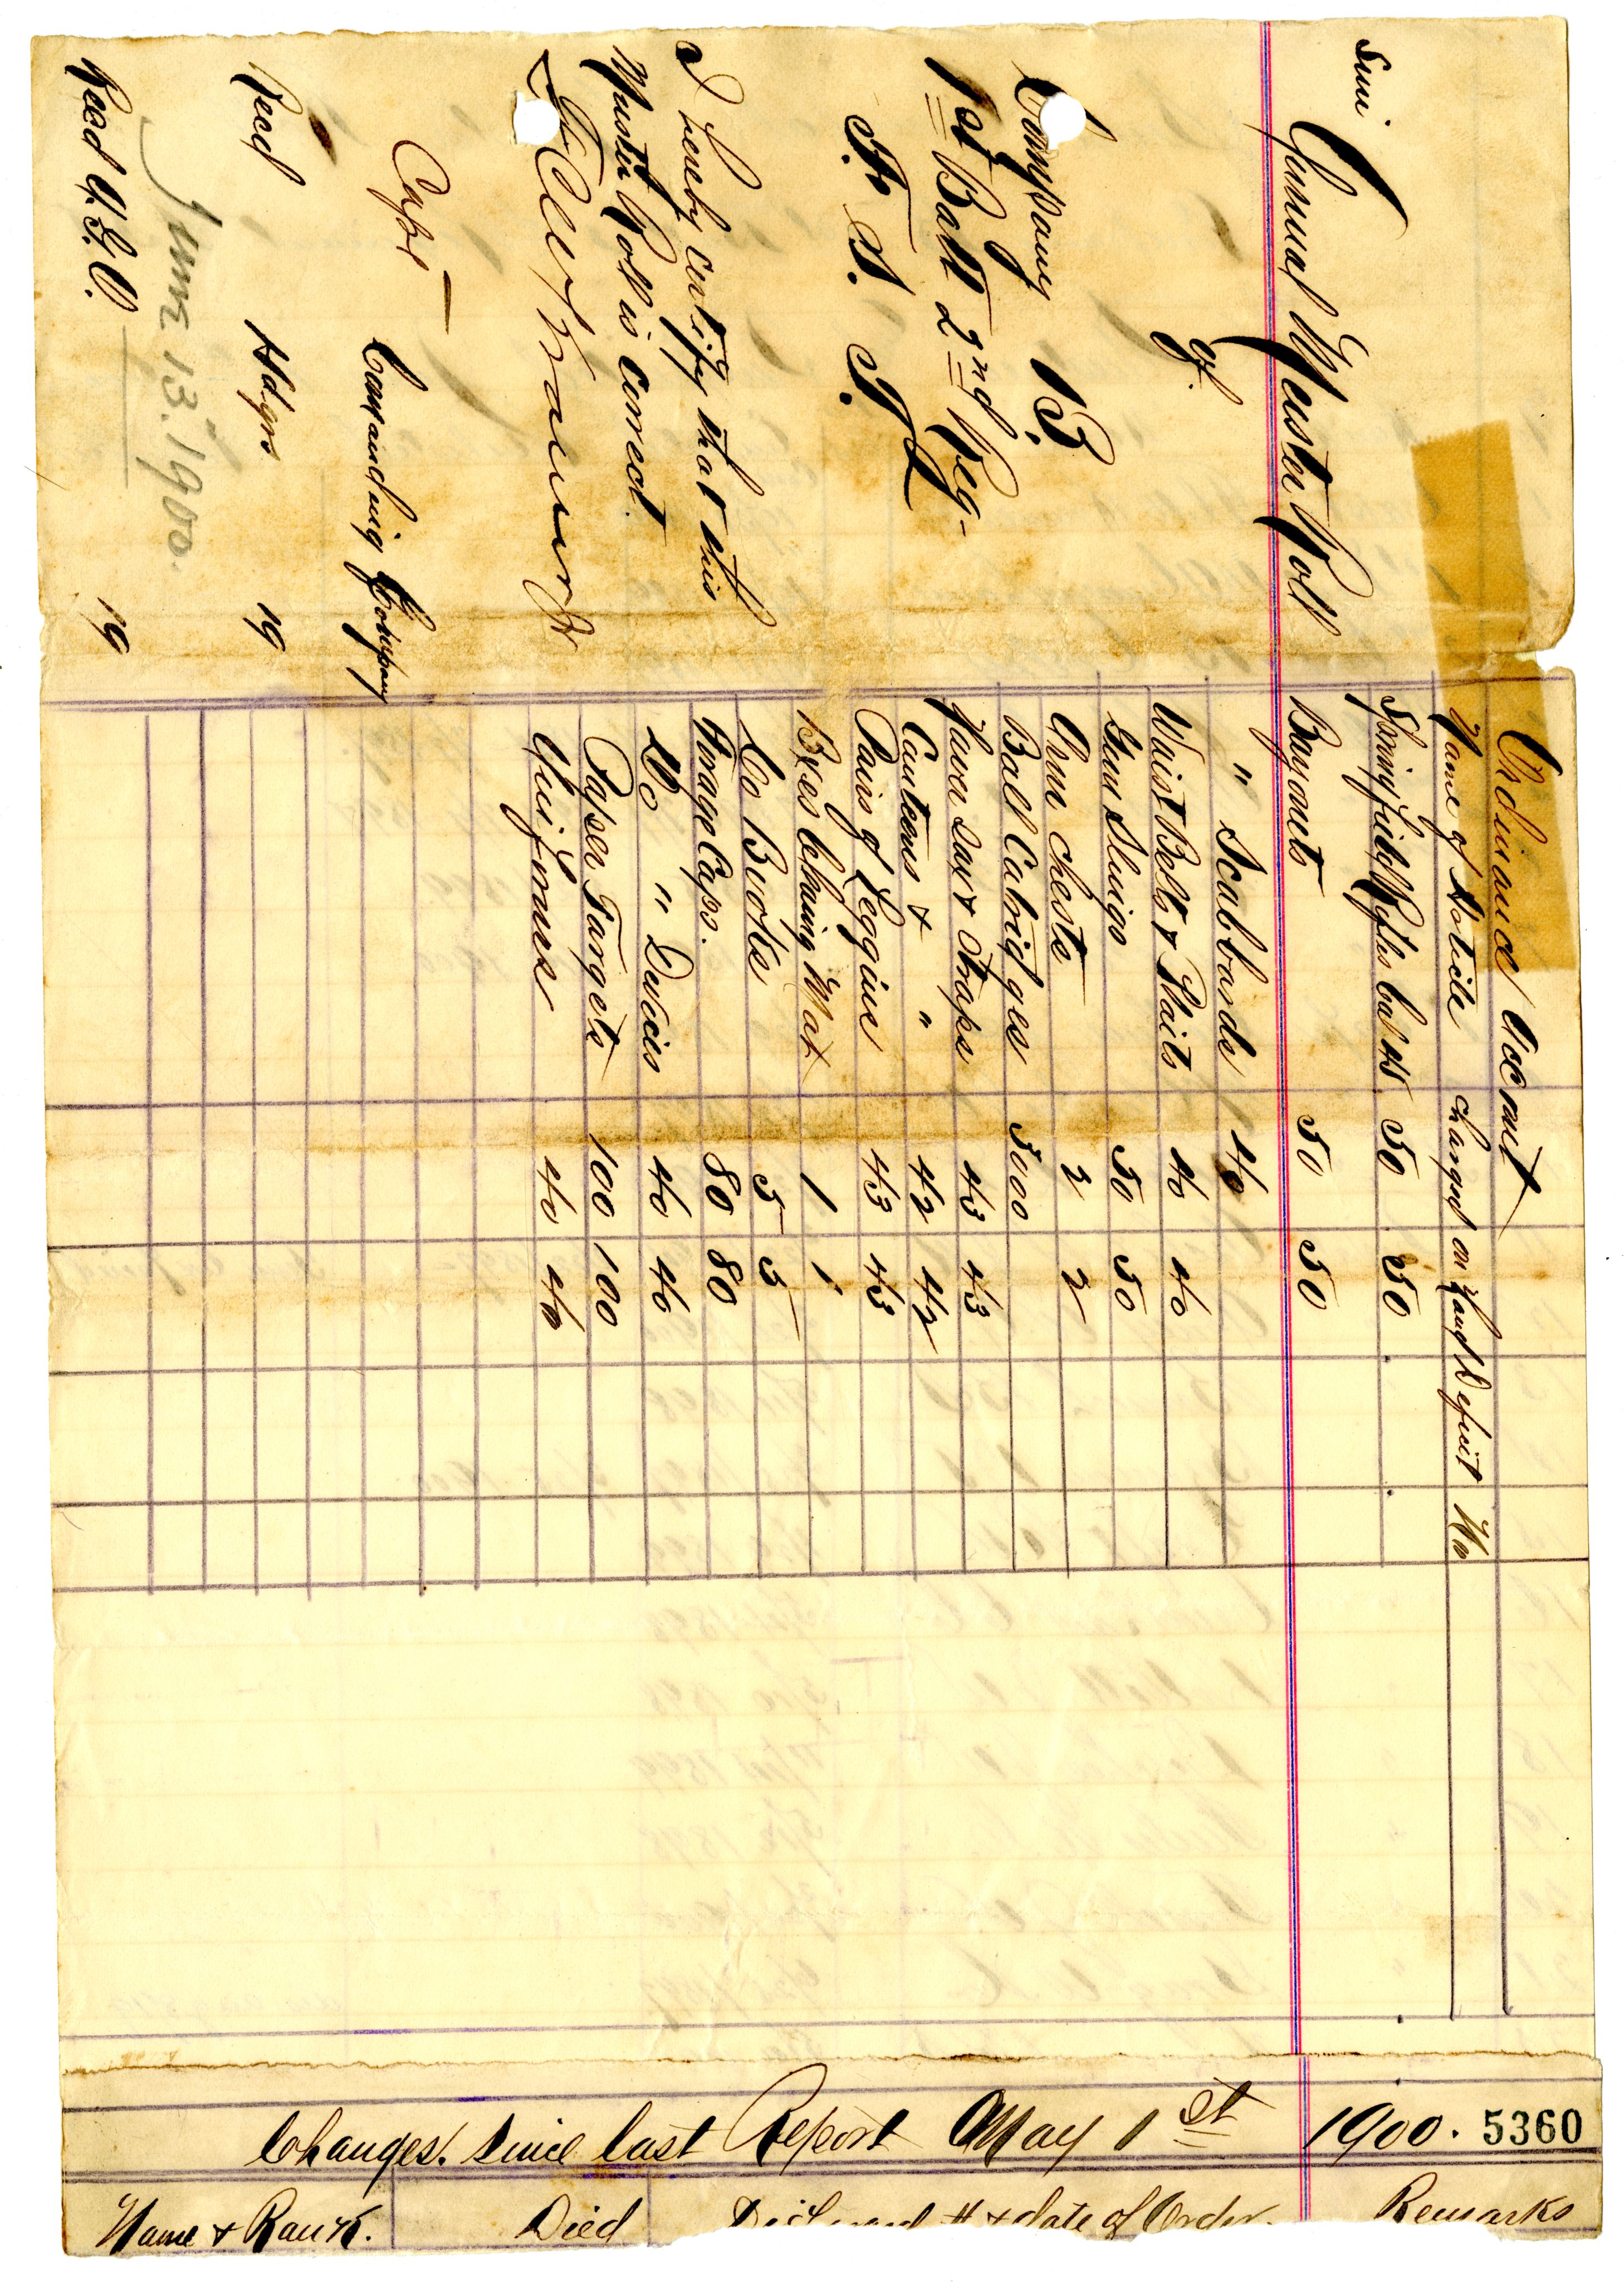 Semi
Annual Muster Roll
of
Company B.
1st Batt 2nd Reg-
F. S. T
I hereby certify that this
Muster Roll is correct.
Capt
Comanding Company
Recd Hdqrs 19
June 13. 1900.
Recd A. G. O. 19
Ordinance Accout
Name of Article charged on Hand Deficit
Springfield Rifles Cal 45 50 50
Bayonets 50 50
" Scabbards 40
Waist Belts & Plaits 40 40
Gun Slings 50 50
Arm Chests 2 2
Ball Catridges 5000
Haver Sax & Straps 43 43
Canteens & " 42 42
Pairs of Leggins 43 43
Bxes Cleaning Mat 1 1
Co Books 5 5
Forage Caps. 80 80
Do " Devices 40 40
Paper Targets 100 100
Uniforms 40 40
Changes. Since last Report May 1st 1900. 5360
Name & Rank. Died # & date of Order. Remarks